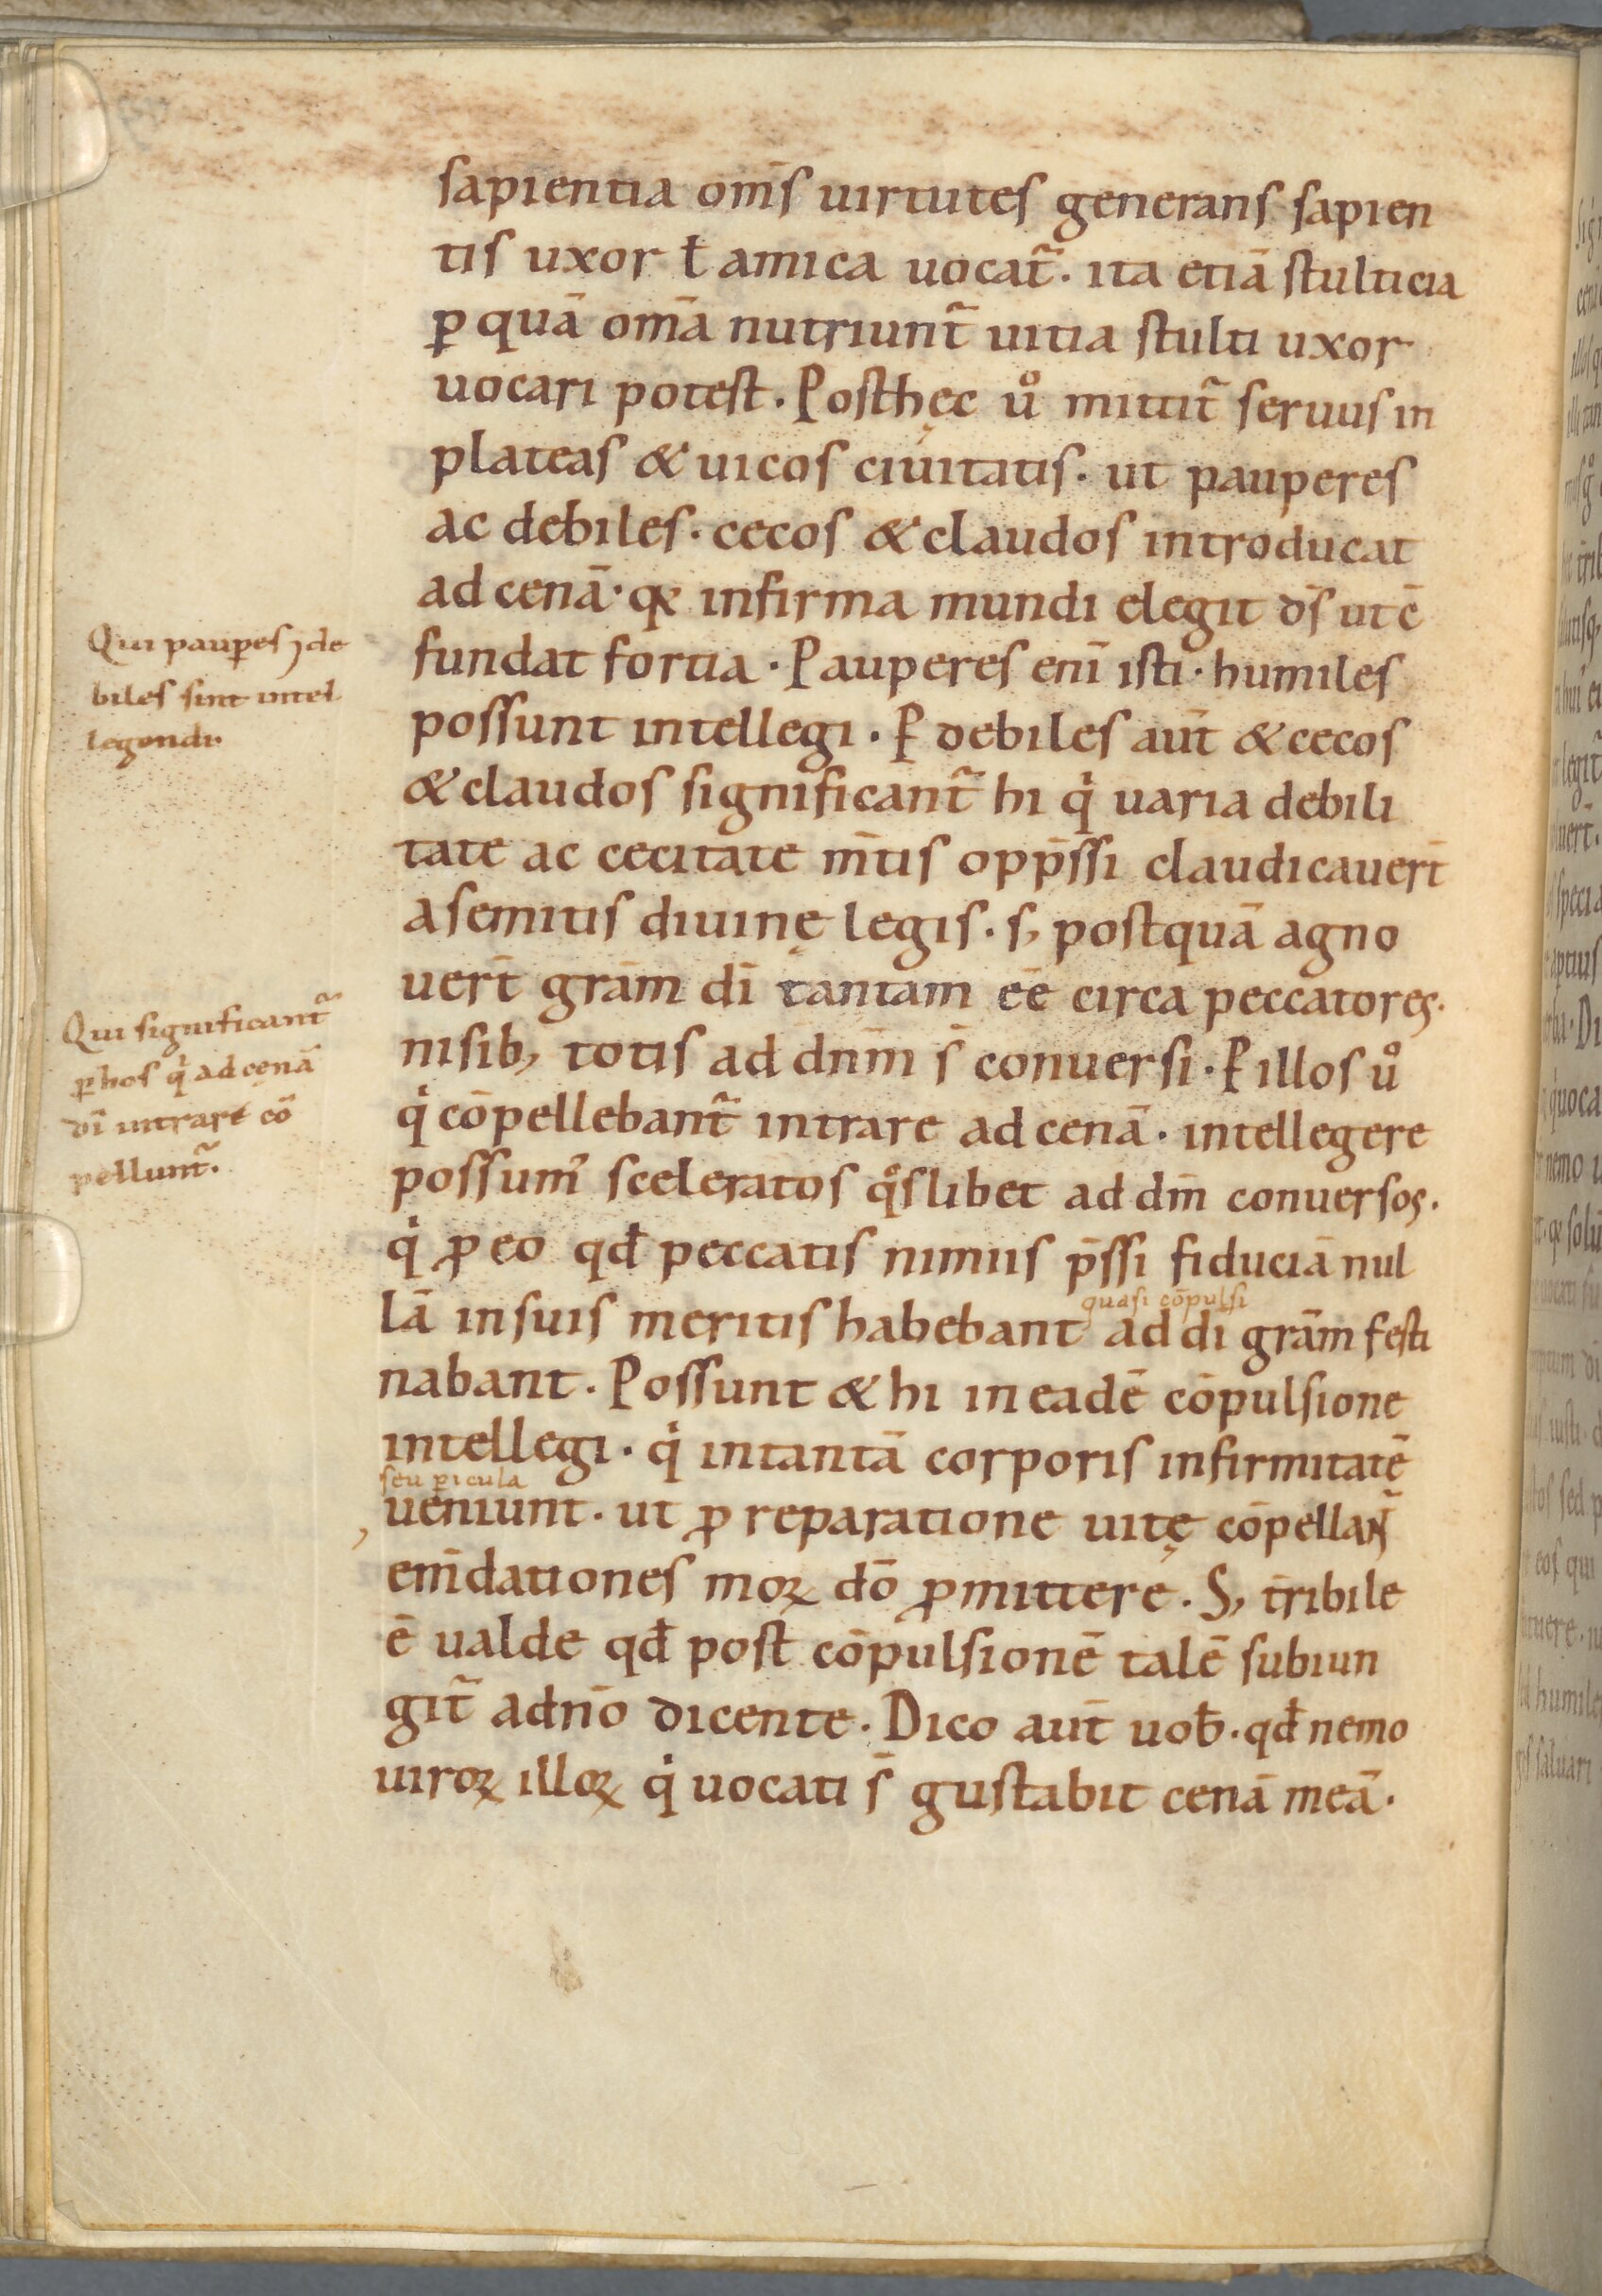 sapientia om̄s uirtutes generans sapien
tis uxor ł amica uocat᷑. ita etiā stulticia
ꝑ quā om̄a nutriunt᷑ uitia stulti uxor
uocari potest. Posthęc uͦ mittit᷑ seruus in
plateas & uicos ciuitatis. ut pauperes
ac debiles. cecos & claudos introducat
ad cenā. qꝛ infirma mundi elegit d̄s ut c̄
fundat fortia. Pauperes eni̅ isti. humiles
possunt intellegi. Ꝑ debiles aut̄ & cecos
& claudos significant᷑ hi qͥ uaria debili
tate ac cecitate m̄tis opp̄ssi claudicauer̄t
a semitis diuinę legis. s, postquā agno
uer̄t grām dī tantam eē circa peccatores.
nisib, totis ad dn̄m s̄ conuersi. Ꝑ illos uͦ
qͥ cōpellebant᷑ intrare ad cenā. intellegere
possum᷒ sceleratos qͦslibet ad dm̄ conuersos.
qͥ ꝓ eo qđ peccatis nimiis p̄ssi fiduciā nul
quasi cōpulsi
lā in suis meritis habebant ad dī grām festi
nabant. Possunt & hi in eadē cōpulsione
intellegi. qͥ in tantā corporis infirmitatē
seu ꝑicula
ueniunt. ut ꝓ reparatione uitę cōpellant᷑
em̄dationes moꝝ dō ꝓmittere. S, t̄ribile
ē ualde qđ post cōpulsionē talē subiun
git᷑ a dn̄o dicente. Dico aut̄ uob̄. qđ nemo
uiroꝝ illoꝝ qͥ uocati s̄ gustabit cenā meā.
Qui pauꝑes ⁊ de
biles sint intel
legendi.
Qui significant᷑
ꝑ hos qͥ ad cenā
dī intrare cō
pellunt᷑.